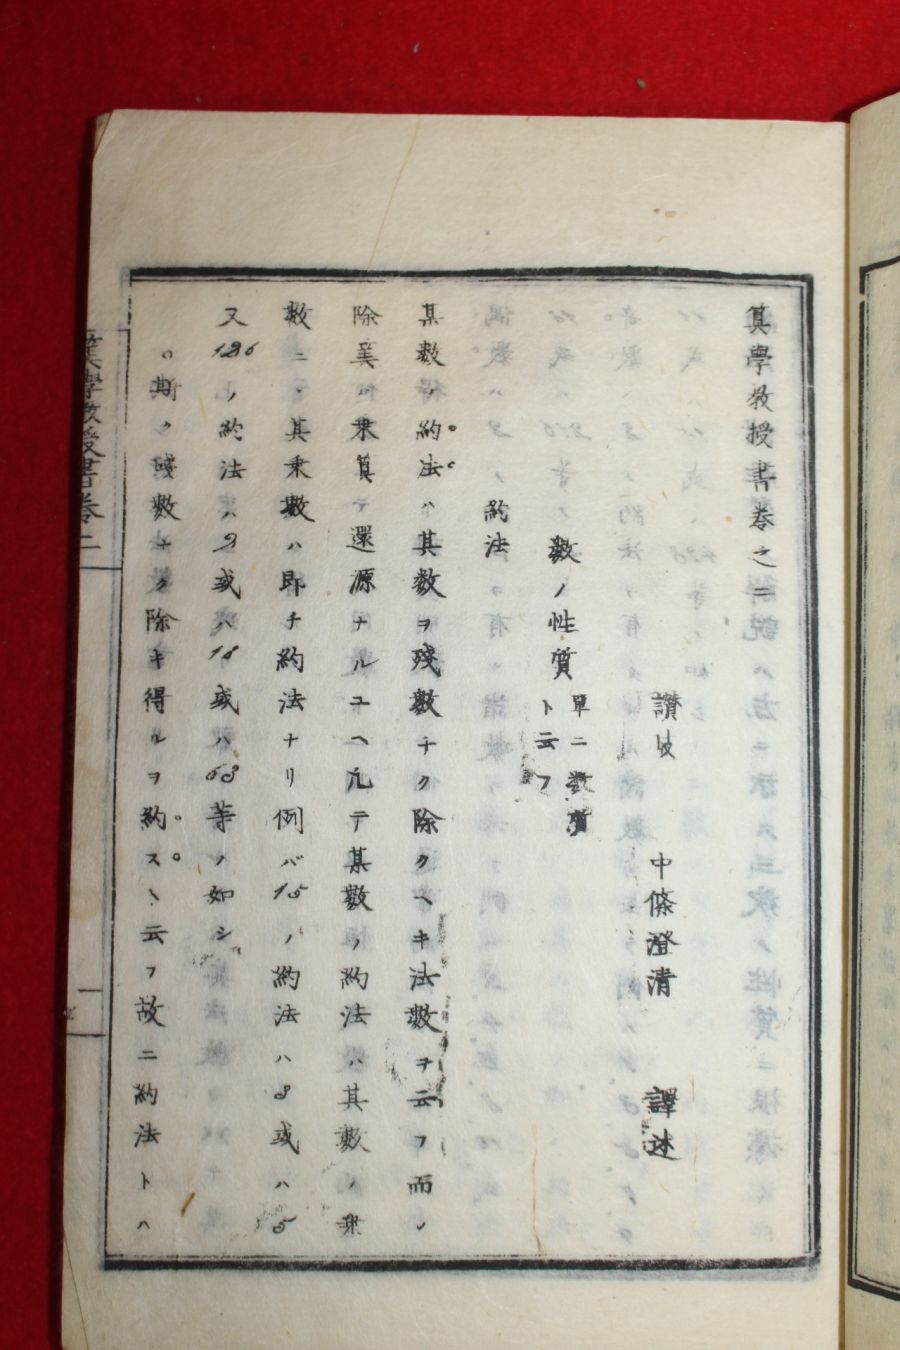 算學教授書卷之二
讃岐 中條澄清 譯述
數ノ性質 單ニ數質
ト云フ
約法
某數ノ約法ハ其數ヲ殘數ナク除クヘキ法數ヲ云フ而ノ
除業ハ乗算ヲ還源ナルユヘ凢テ某數ノ約法ハ其數ノ乗
數ニノ其乗數ハ即チ約法ナリ例バ15ノ約法ハ3或ハ5
又126ノ約法ハ2或ハ18或ハ63等ノ如シ
斯ク殘數ナク除キ得ルヲ約スヽ云フ故ニ約法トハ
算學教授書卷二
一